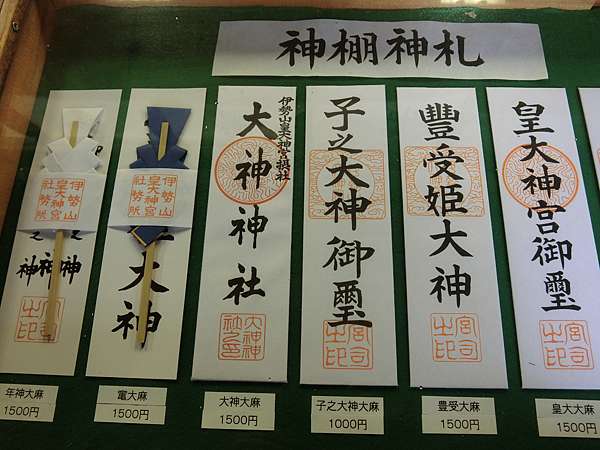 神棚神札
皇大神宮御璽
宮司之印
豐受姫大神
宮司之印
子之大神御璽
宮司之印
伊勢山皇大神宮摂社
大神神社
大神神社之印
伊勢山
皇大神宮
社勢所
大神
伊勢山
皇大神宮
社勢所
神神神
宮司之印
年神大麻
1500円
竃大麻
1500円
大神大麻
1500円
子之大神大麻
1000円
豊受大麻
1500円
皇大大麻
1500円